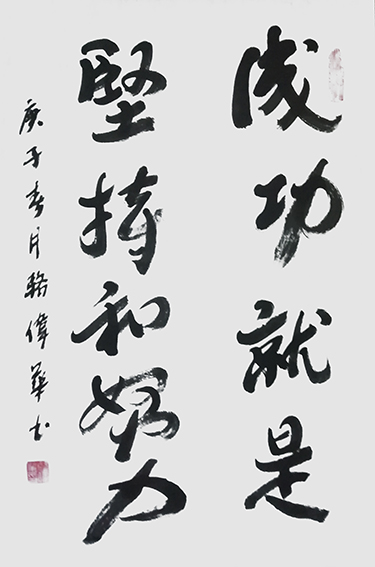 成功就是
堅持和努力
庚子春月駱偉華书